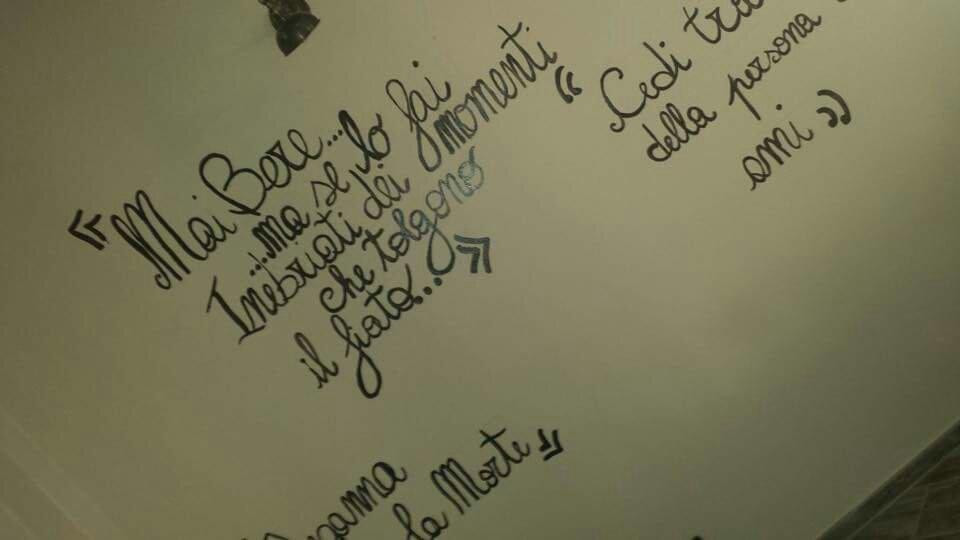 « Mai Bere...
...ma se lo fai
Inebriati dei momenti
che tolgono
il fiato... »
“ Cedi
della persona
ami ”
la Morte »